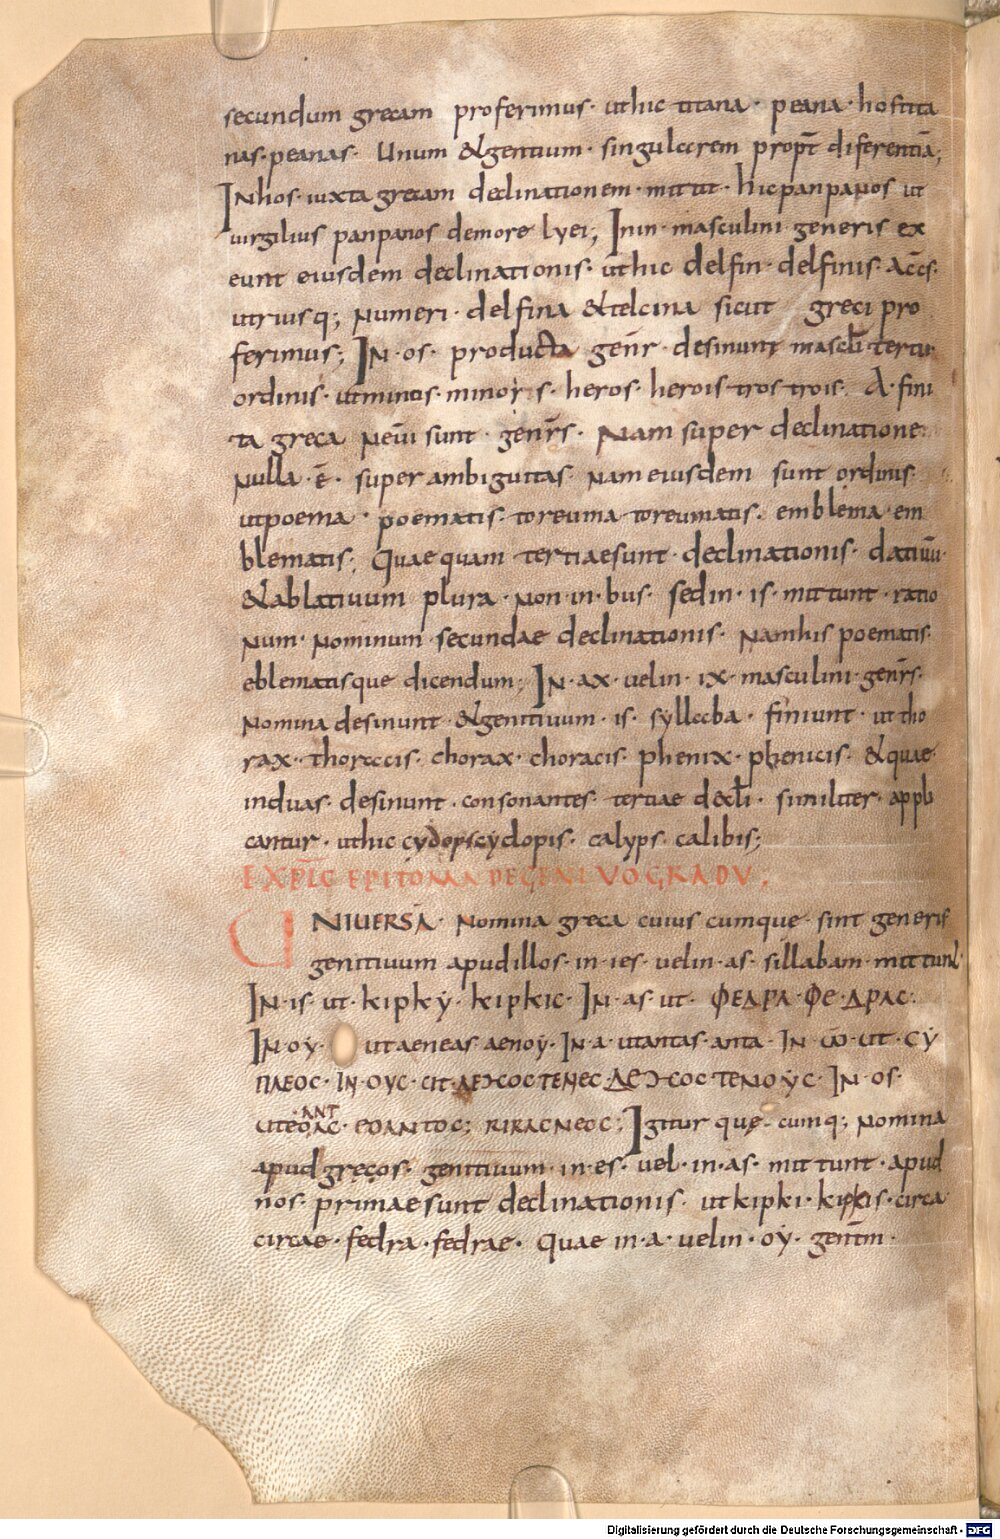 secundum grecam proferimus · ut hic titana · peana · hos tita
nas · peanas · Unum &gentium · singularem propt̄ diferentiā;
INhos · iuxta grecam declinationem · mittit · hic panpanos ut
uirgilius panpanos demore lyei; Inin · masculini generis ex
eunt eiusdem declinationis · ut hic delfin · delfinis · Accs̄ ·
utriusq; numeri · delfina &telcina sicut greci pro
ferimus; IN · os · producta gen̄r · desinunt masculi tertii
ordinis · ut minos · minoi s · heros · herois tros trois · A · fini
ta greca neū sunt · gen̄rs · Nam super declinatione
nulla · ē · super ambiguitas · nam eiusdem sunt ordinis ·
ut poema · poematis · toreuma toreumatis · emblema · em
blematis · Quae quam tertiae sunt · declinationis · datiuū ·
&ablatiuum plura · non · in · bus · sed in · is · mittunt · ratio
num · nominum secundae declinationis · Nam his poematis ·
eblematisque dicendum; IN · ax · uel in · ix · masculini gen̄rs ·
Nomina desinunt · &genitiuum · is · syllaba · finiunt · ut tho
rax · thoracis · chorax · choracis · phenix · phenicis · &quae
in duas · desinunt · consonantes · tertiae decl̄i · similiter · appli
cantur · ut hic cyclops cyclopis · calyps · calibis;
EXPLC̄ EPITOMA DEGENI VO GRADV ·
UNIUERSA · Nomina greca cuius cumque · sint generis
genitiuum apud illos · in · ies · uel in · as · sillabam · mittunt
IN · is · ut · kipkẏ · kipkic · IN · as · ut · ΦΕΔΡΑ · ΦΕ · ΔΡΑC ·
IN · oẏ · ut aeneas aenoẏ · IN · a · ut antas · anta · IN · ω̄ · ut · cẏ
ΠΛΕΟC · IN · OYC · UT · ΔΕϽCOCTENEC · ΔΕϽCOC · TENOẎC · IN · OS ·
UTEOAC · ANT · EOANTOC; RIRACNEOC; Igitur que · cumq; nomina
apud grecos · genitiuum · in · es · uel · in · as · mittunt · apud
nos · primae sunt declinationis · ut kipki · kipkis · circa
circae · fedra · fedrae · Quae in · a · uel in · oẏ · genitm̄ ·
Digitalisierung gefördert durch die Deutsche Forschungsgemeinschaft - DFG